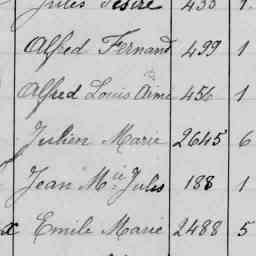 Jules Désiré 433 1
Alfred Fernand 499 1
Alfred Louis Aimé 456 1
Julien Marie 2645 6
Jean Mie Jules 188 1
x Emile Marie 2488 5